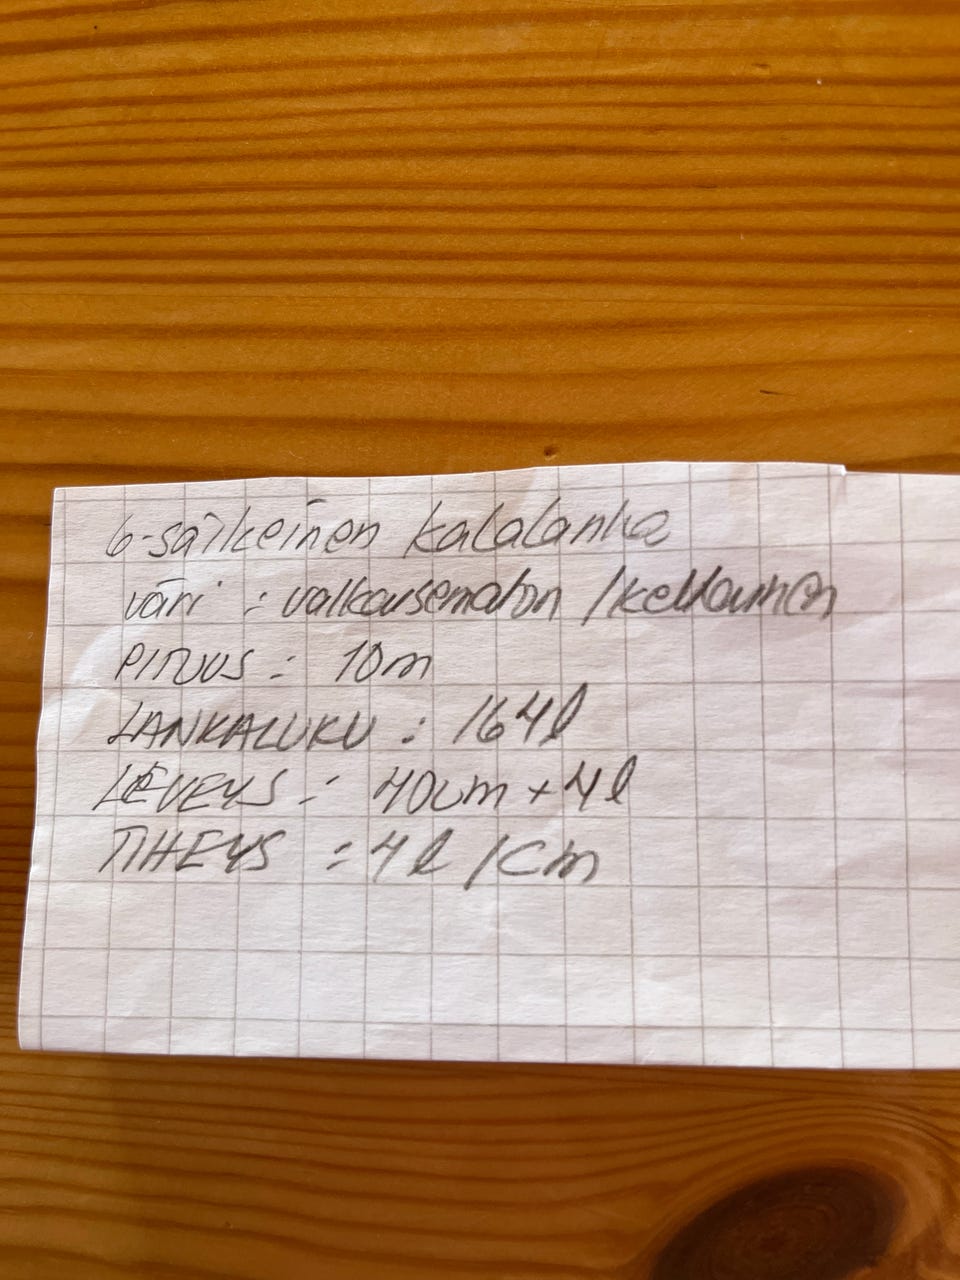 6-säikeinen kalalanka
väri : valkaisematon /keltainen
PITUUS : 10m
LANKALUKU : 164l
LEVEYS : 40cm + 4l
TIHEYS : 4l /cm